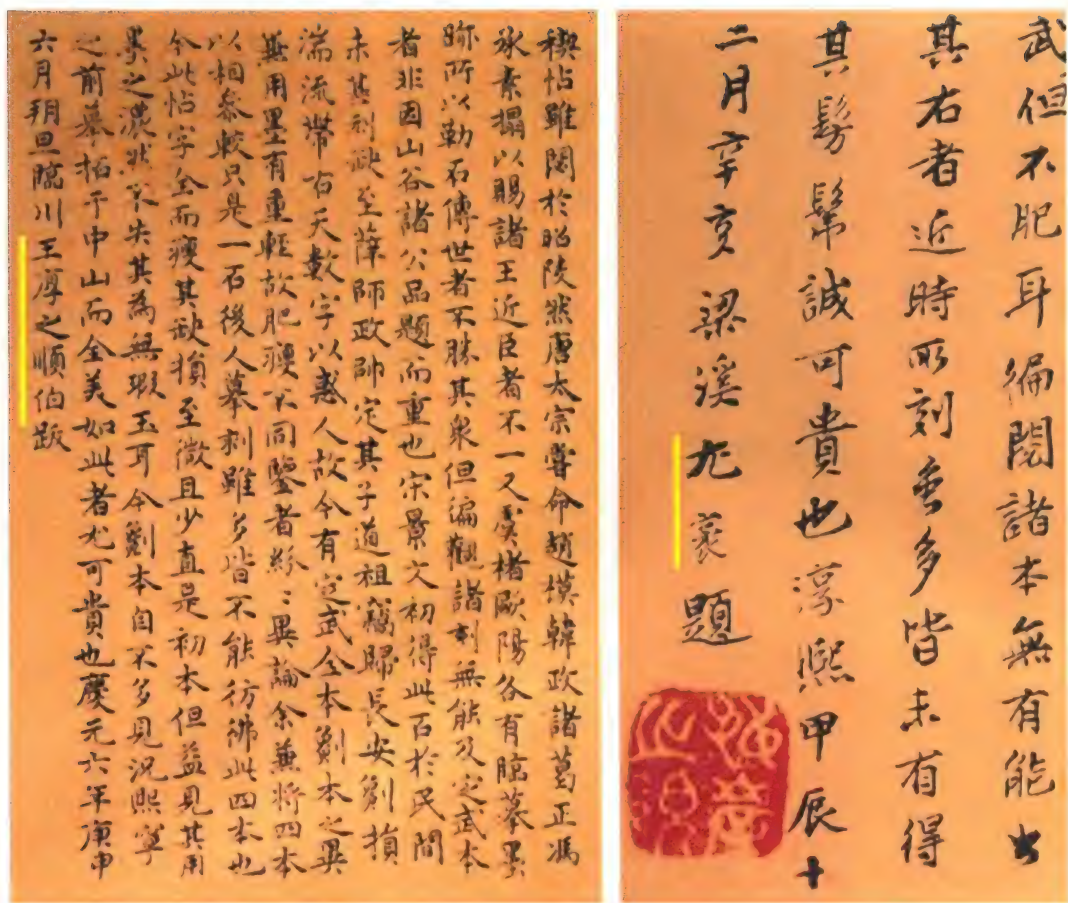 武但不肥耳徧閱諸本無有能出
其右者近時所刻多皆未有得
其髣髴誠可貴也淳熙甲辰十
二月辛亥梁溪尤袤題
禊帖雖閟於昭陵然唐太宗嘗命趙模韓政諸葛正馮
承素搨以賜諸王近臣者不一又虞褚歐陽各有臨摹墨
跡所以勒石傳世者不勝其衆但徧觀諸刻無能及定武本
者非因山谷諸公品題而重也宋景文初得此石於民間
未甚刓缺至薛師政帥定其子道祖竊歸長安劖損
湍流帶右天數字以惑人故今有定武全本劖本之異
兼用墨有重輕故肥瘦不同鑒者紛々異論余兼將四本
以相參較只是一石後人摹刻雖多皆不能彷彿此四本也
今此帖字全而瘦其缺損至微且少直是初本但益見其用
墨之濃淡不失其為無瑕玉耳今劖本自不多見況熙寧
之前摹拓于中山而全美如此者尤可貴也慶元六年庚申
六月朔旦臨川王厚之順伯跋